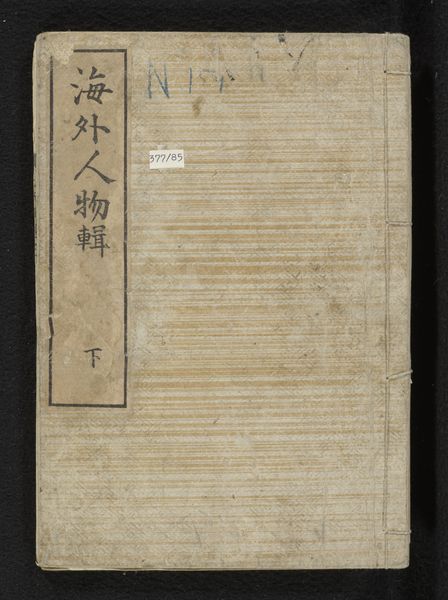 海外人物輯
下
377/85